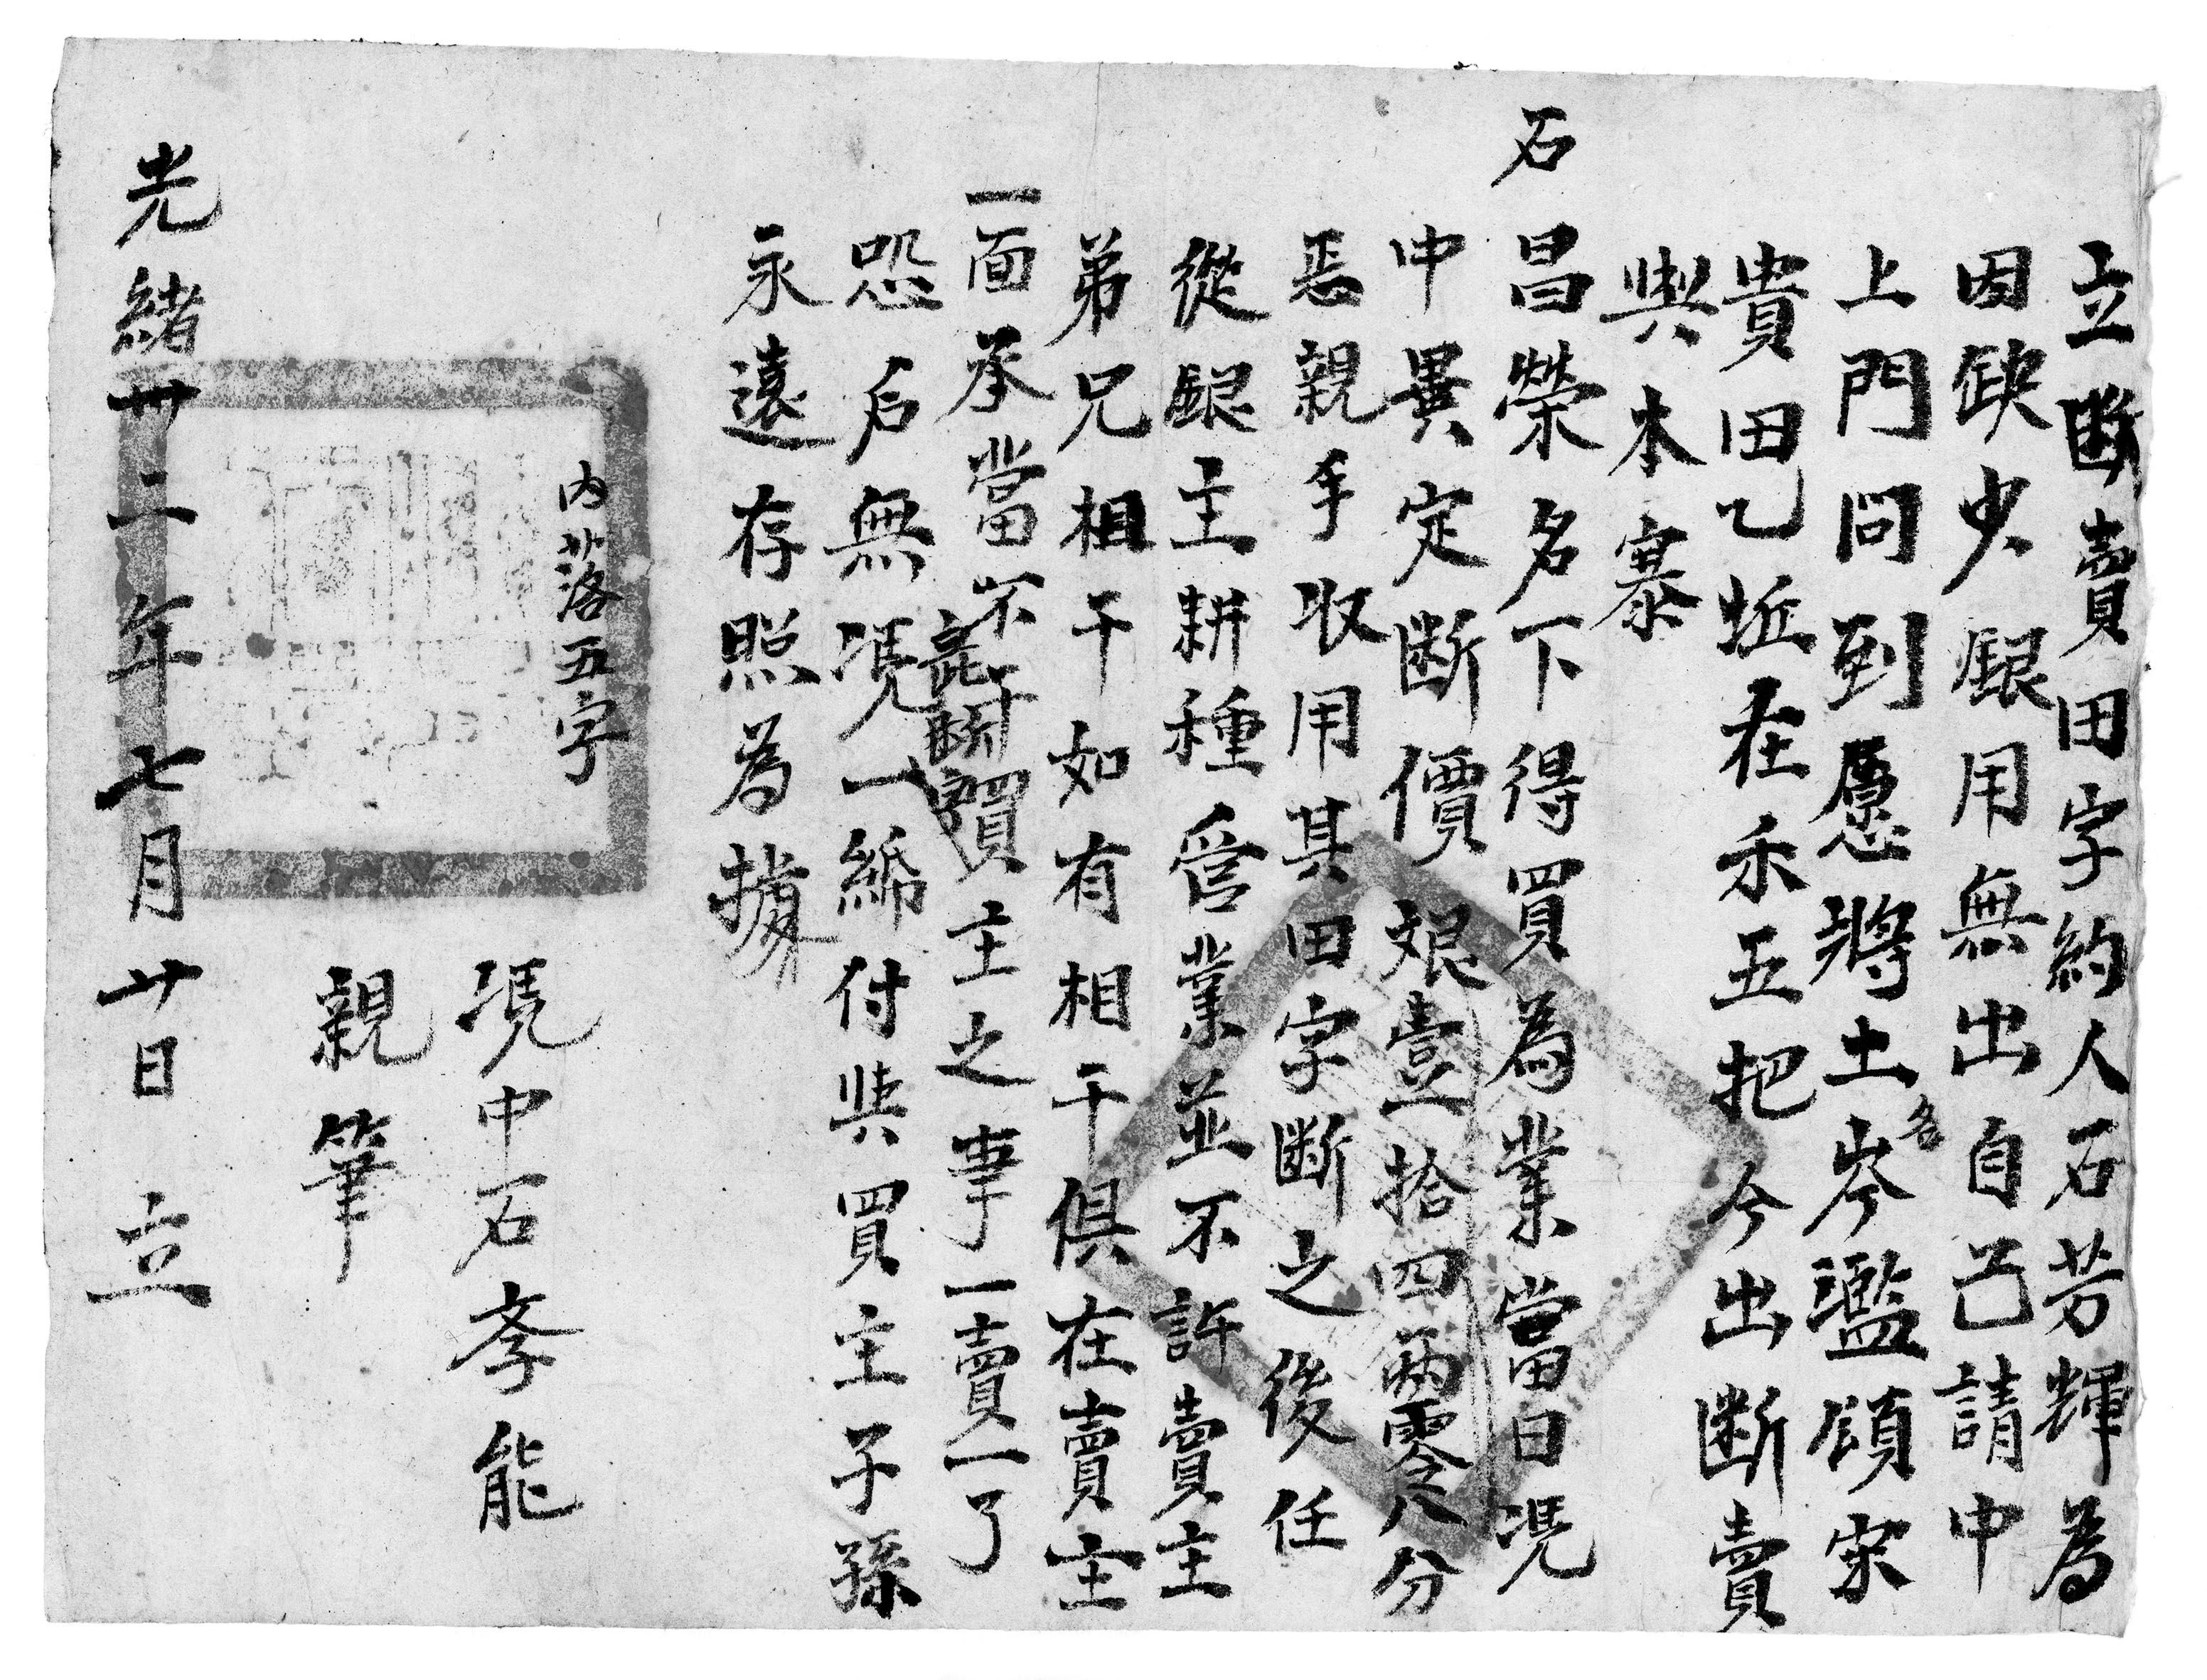 立斷賣田字約人石芳輝為
因缺少銀用無出自己請中
上門問到愿將土名岑濫頌宋
貴田乙坵在禾五把今出斷賣
與本寨
石昌榮名下得買為業當日凴
中異定斷價艮壹拾四兩零八分
恁親手收用其田字斷之後任
從銀主耕種管業並不許賣主
弟兄相干如有相干俱在賣主
一面承當不買主之事一賣一了
恐后無凴一紙付與買主子孫
永遠存照為據
內落五字
凴中石孝能
親筆
光緒卅二年七月廿日立